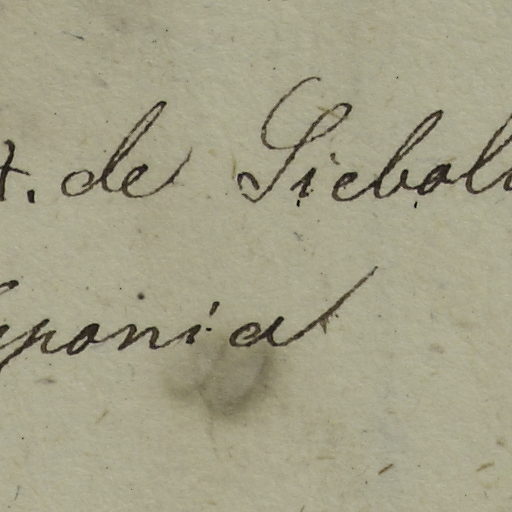 t. de Siebol
aponia